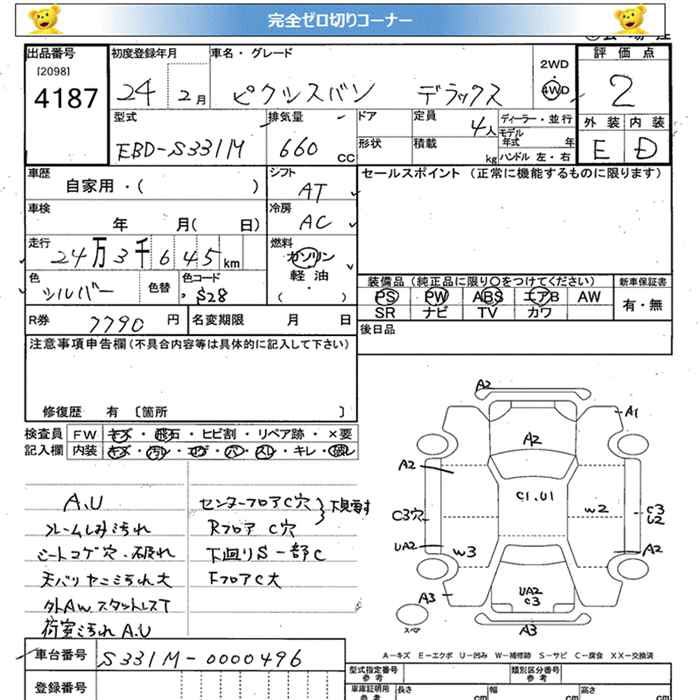 完全ゼロ切りコーナー
出品番号 初度登録年月 車名・グレード 2WD 評価点
[2098]
4187 24 2月 ピクシスバン デラックス 4WD 2
型式 排気量 ドア 定員 4人 ディーラー・並行 外装 内装
モデル年式 年
EBD-S331M 660 CC 形状 積載 kg ハンドル 左・右 E D
車歴 シフト セールスポイント (正常に機能するものに限ります)
自家用・( ) AT
車検 冷房
年 月( 日) AC
走行 燃料
24万3千645km ガソリン
軽油
( )
色 色替 色コード 装備品 (純正品に限り○をつけてください) 新車保証書
シルバー S28 PS PW ABS エアB AW 有・無
SR ナビ TV カワ
R券 7790円 名変期限 月 日 後日品
注意事項申告欄 (不具合内容等は具体的に記入して下さい)
修復歴 有 〔箇所 〕
検査員 FW キズ・飛石・ヒビ割・リペア跡・×要
記入欄 内装 キズ・汚レ・コゲ・穴・スレ・キレ・破レ
A.U センターフロアC穴
フレームしみ汚れ Rフロア C穴
シートコゲ穴・破れ 下廻りS一部C
天バリヤニ汚れ大 FフロアC大
外AWスタットレスT
荷室汚れA.U
A2
A1
A2
A2
C1.U1
C3穴
W2
C3
U2
UA2
W3
A2
UA2
C3
A3
A3
スペア
A-キズ E-エクボ U-凹み W-補修跡 S-サビ C-腐食 XX-交換済
車台番号 S331M-0000496
型式指定番号 参考 類別区分番号 参考
登録番号 車庫証明用 参考 長さ cm 幅 cm 高さ cm